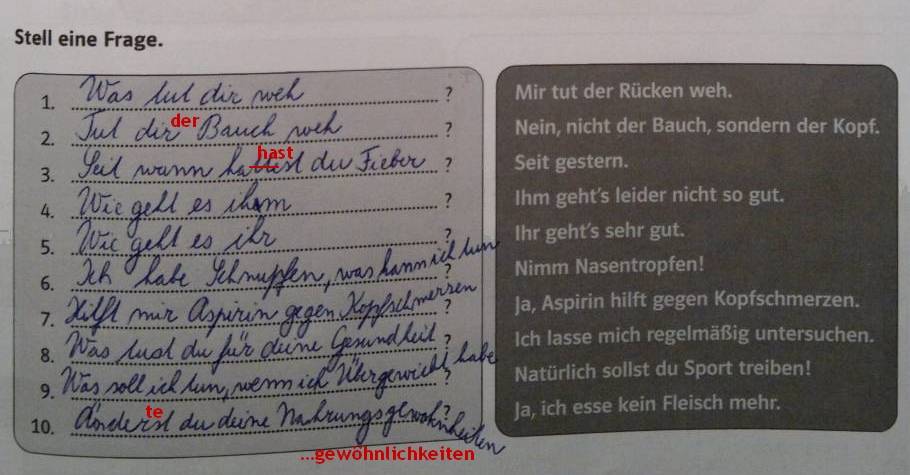 Stell eine Frage.
1. Was tut dir weh ?
2. Tut dir der Bauch weh ?
3. Seit wann hattest hast du Fieber ?
4. Wie geht es ihm ?
5. Wie geht es ihr ?
6. Ich habe Schnupfen, was kann ich tun ?
7. Hilft mir Aspirin gegen Kopfschmerzen ?
8. Was tust du für deine Gesundheit ?
9. Was soll ich tun, wenn ich Übergewicht habe ?
10. Änderst te du deine Nahrungsgewohnheiten ?
...gewöhnlichkeiten
Mir tut der Rücken weh.
Nein, nicht der Bauch, sondern der Kopf.
Seit gestern.
Ihm geht's leider nicht so gut.
Ihr geht's sehr gut.
Nimm Nasentropfen!
Ja, Aspirin hilft gegen Kopfschmerzen.
Ich lasse mich regelmäßig untersuchen.
Natürlich sollst du Sport treiben!
Ja, ich esse kein Fleisch mehr.